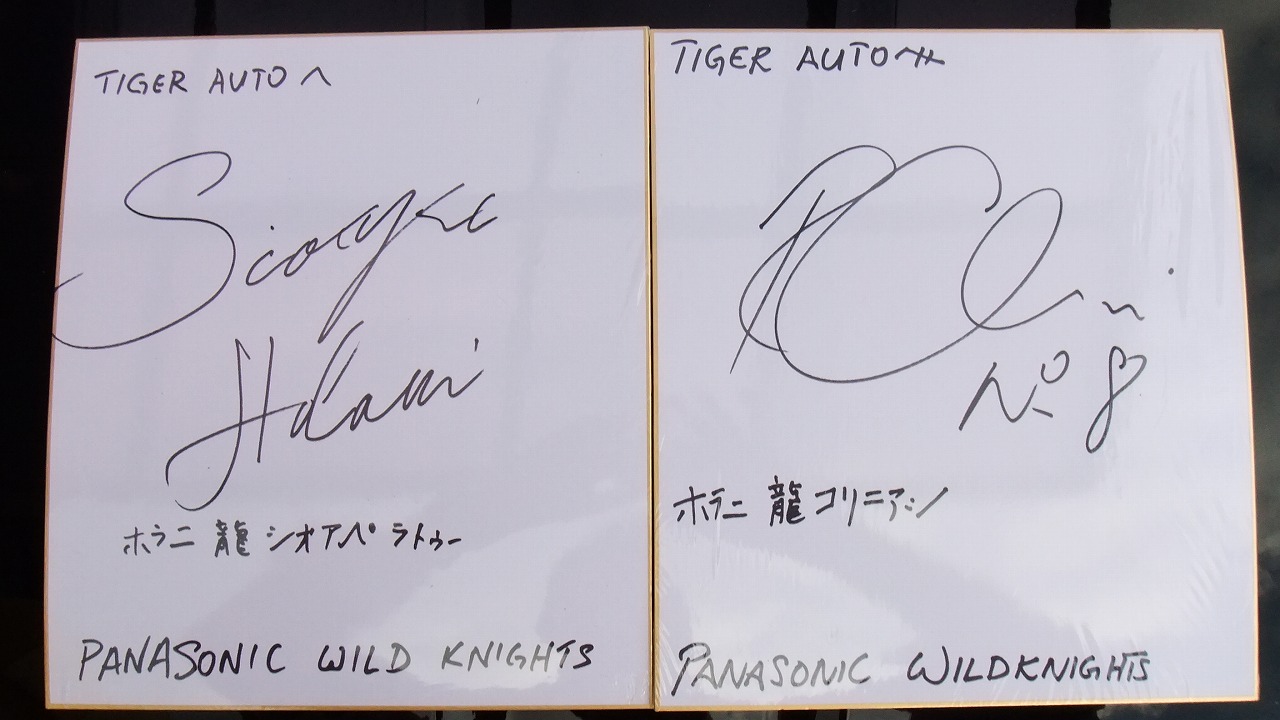 TIGER AUTO へ
ホラニ 龍 シオアペラトゥー
PANASONIC WILD KNIGHTS
TIGER AUTO へ
No 8
ホラニ 龍 コリニアシ
PANASONIC WILDKNIGHTS